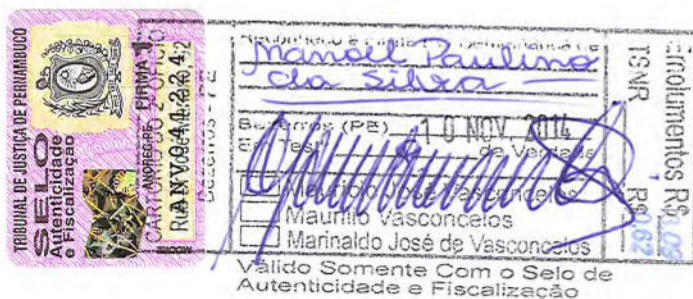 TRIBUNAL DE JUSTIÇA DE PERNAMBUCO
SELO
Autenticidade
e Fiscalização
ANOREG-PE FIRMA 1
ANV041224
Manoel Paulino
da Silva
Bezerros (PE) 10 NOV. 2014
Em Test. de Verdade
Maurício José Vasconcelos
Maurilio Vasconcelos
Marinaldo José de Vasconcelos
Válido Somente Com o Selo de
Autenticidade e Fiscalização
Emolumentos R$
TSNR R$ 0,62